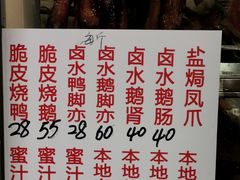 每斤
脆皮烧鸭
28
脆皮烧鹅
55
卤水鸭脚亦
28
卤水鹅脚亦
60
卤水鹅肾
40
卤水鹅肠
40
盐焗凤爪
蜜汁
蜜汁
本地
本地
本地